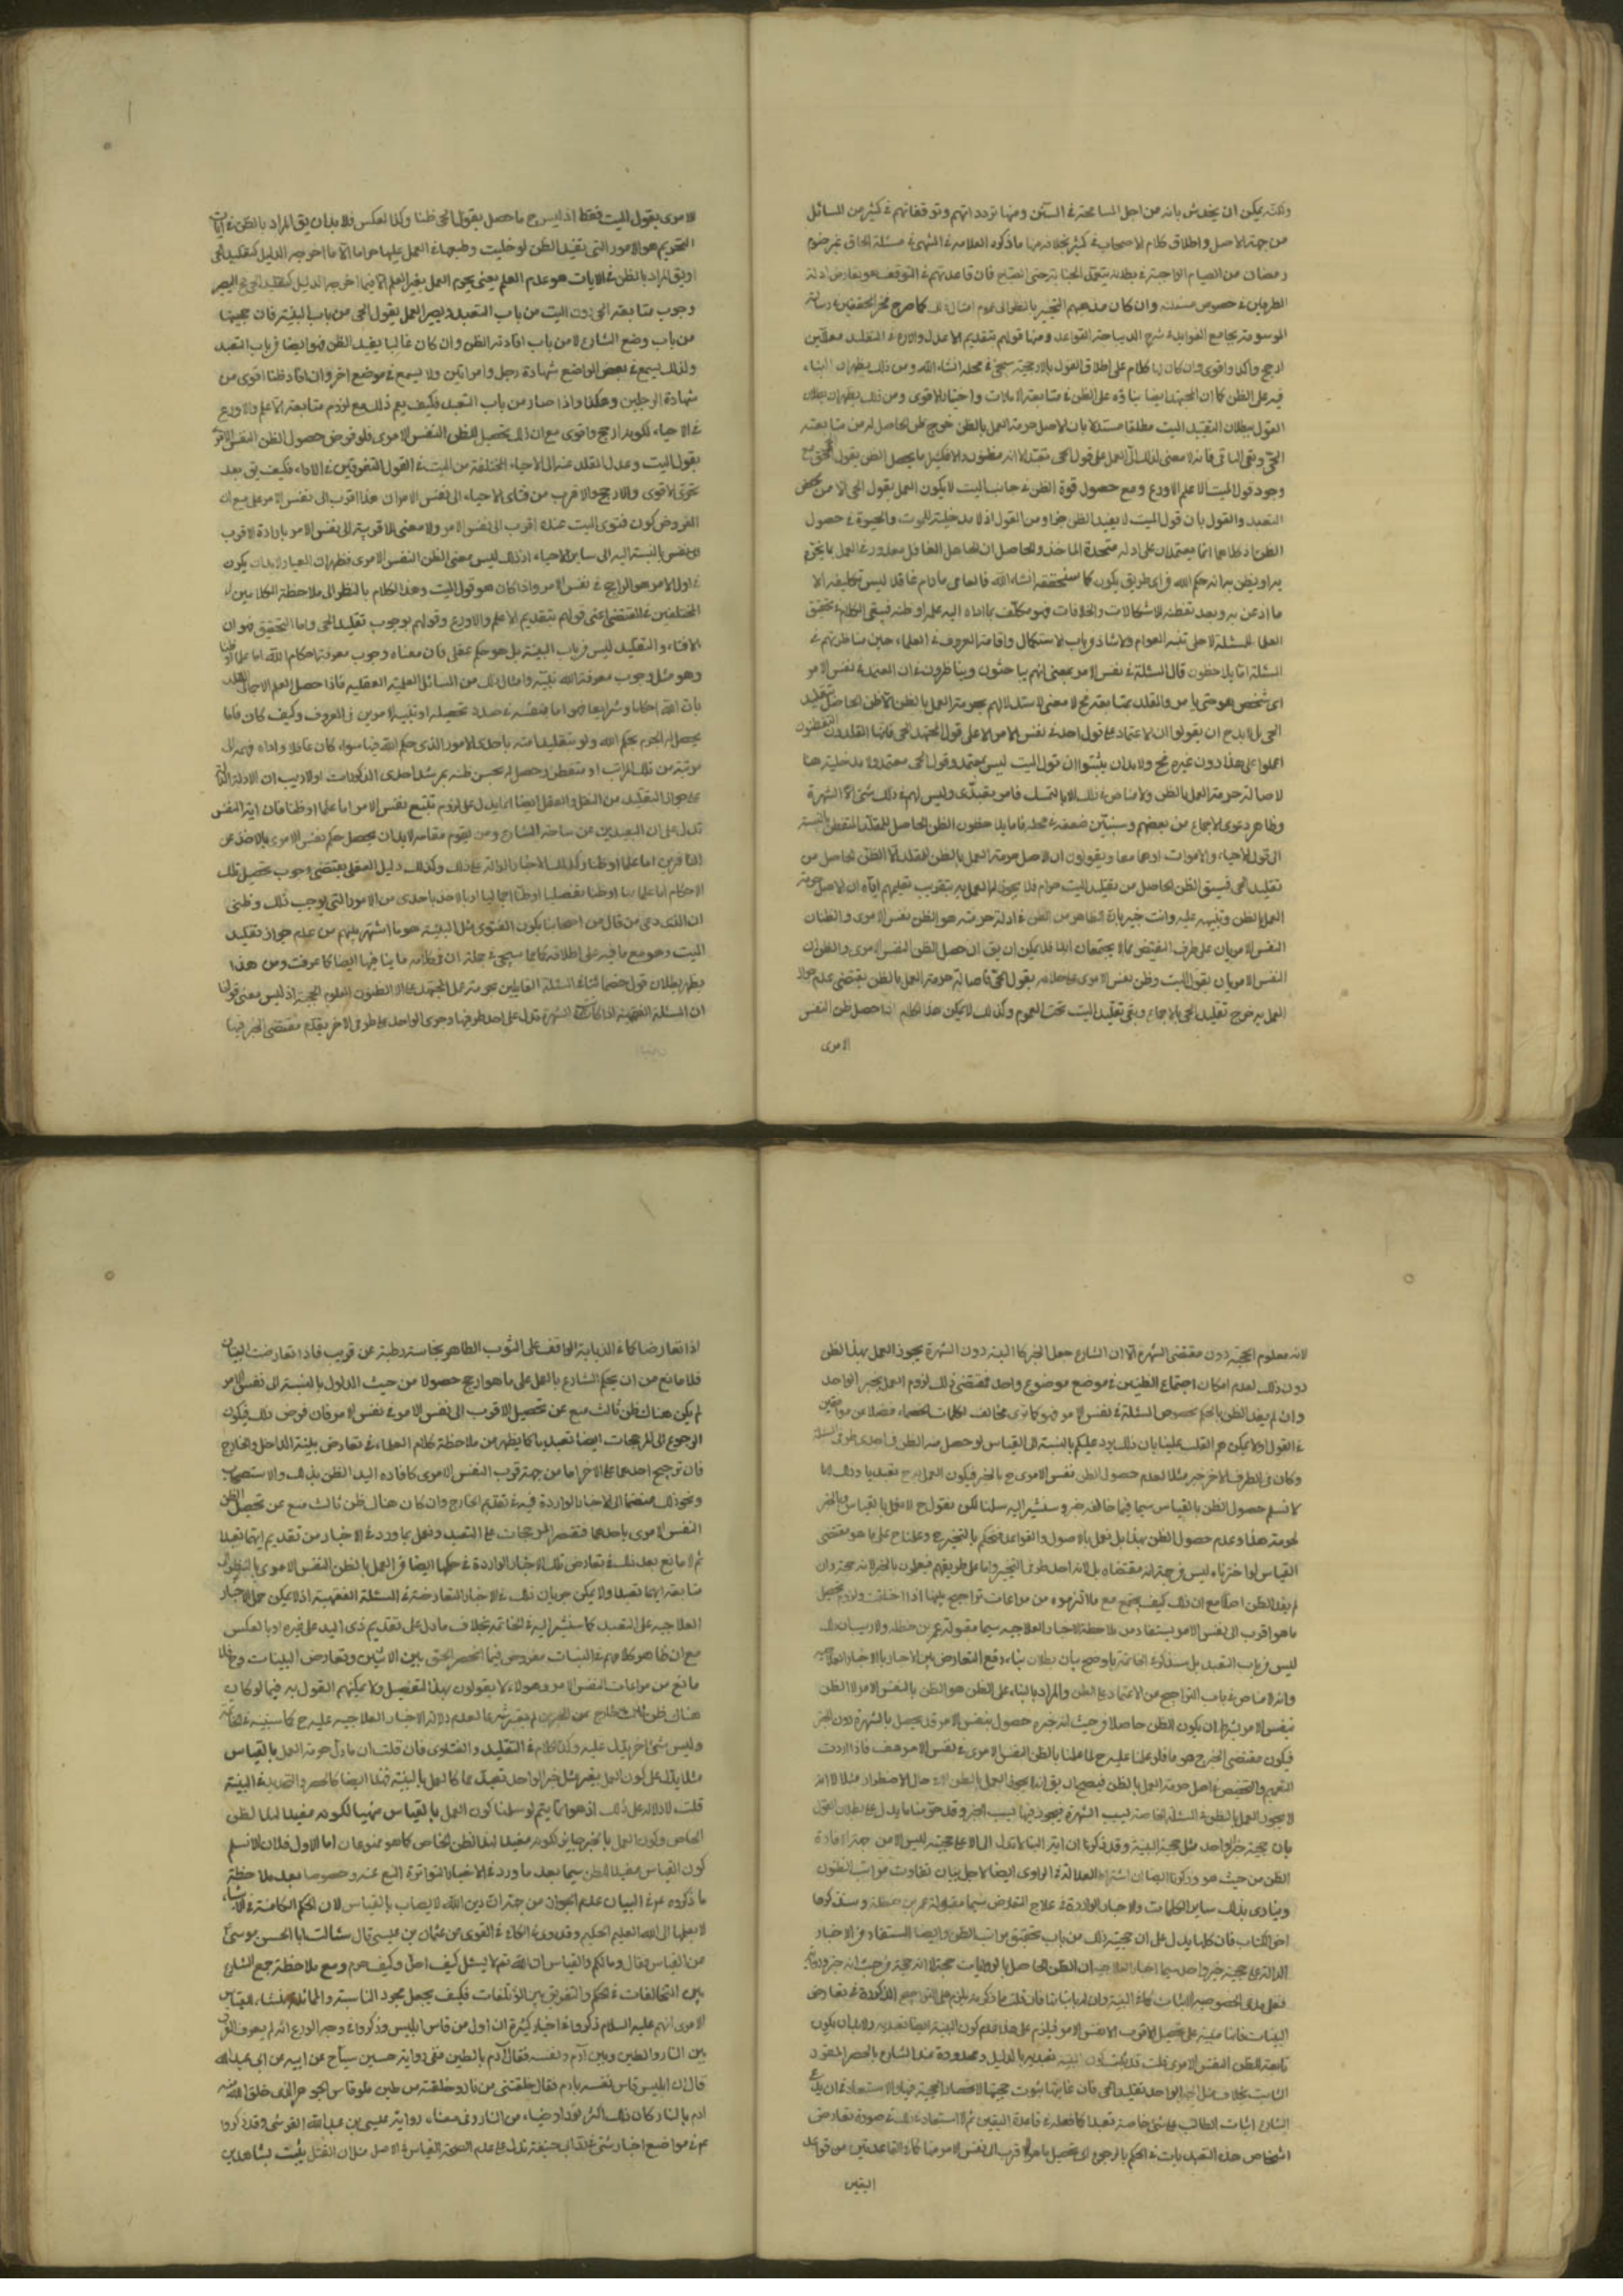 ولكنه يمكن ان يخدش بانه من اجل المسامحة في السنن ومنها تردداتهم وتوقفاتهم في كثير من المسائل
من جهة الاصل واطلاق كلام الاصحاب في كثير بخلافه منها ما ذكره العلامة في المنتهى في مسئلة الحاق غير صوم
رمضان من الصيام الواجبة في بطلانه بتعمد الجنابة حتى الصباح فان قاعدتهم في التوقف هو تعارض ادلة
الطرفين في خصوص مسئلة وان كان مذهبهم التخيير بالنظر الى عموم امثال ذلك كما صرح فخر المحققين في رسالته
الموسومة بجامع الفوايد في شرح الديباجة القواعد ومنها قولهم بتقديم الاعدل والاورع في التقليد معللين
ارجح واكد واقوى وان كان لنا كلام على اطلاق القول بالارجحية سيجئ في محله انشاء الله ومن ذلك يظهر ان البناء
فيه على الظن كما ان المجتهد ايضا بناؤه على الظن في متابعة الامارات واختيار الاقوى ومن ذلك يظهر ان بطلان
القول ببطلان التقليد الميت مطلقا مستدلا بان الاصل حرمة العمل بالظن خرج ظن الحاصل له من متابعة
الحي وبقى الباقى فانه لا معنى لذلك
وجود قول الميت الاعلم الاورع ومع حصول قوة الظن في جانب الميت لا يكون العمل بقول الحي الا من محض
التعبد والقول بان قول الميت لا يفيد الظن جزاف من القول اذ لا مدخلية للموت والحيوة في حصول
الظن اذ كلاهما انما يعتمدان على ادلة متحدة الماخذ والحاصل ان الجاهل الغافل معذور في العمل بما يجزم
به او يظن به انه حكم الله في اى طريق يكون كما سنحققه انشاء الله فالعامى ما دام غافلا ليس تكليفه الا
ما اذعن به وبعد تفطنه للاشكالات والخلافات فهو مكلف بما اداه اليه علمه او ظنه فبقى الكلام في تحقيق
العلماء للمسئلة لاجل تنبيه العوام والارشاد من باب الاستكمال واقامة المعروف في العلماء حين مناظرتهم في
المسئلة انما يلاحظون قال المسئلة في نفس الامر بمعنى انهم يباحثون ويناظرون في ان المعتمد في نفس الامر
اى شخص هو حتى يامروا المقلد بمتابعته فح لا معنى لاستدلالهم بحرمة العمل بالظن الا ظن الحاصل بتقليد
الحي بل لابد ح ان يقولوا ان الاعتماد على قول احد في نفس الامر الا على قول المجتهد الحي فايها المقلدون المتفطنون
اعملوا على هذا دون غيره فح ولابد ان يثبتوا ان قول الميت ليس بمعتمد وقول الحي معتمد ولا مدخلية هنا
لاصالة حرمة العمل بالظن ولا مناص في ذلك الا بالتمسك وليس لهم في ذلك شئ الا الشهرة
وظاهر دعوى الاجماع من بعضهم وسنبين ضعفه في محله فاما يلاحظون الظن الحاصل للمقلد المتفطن بالنسبة
الى قول الاحياء والاموات ويقولون ان الاصل حرمة العمل بالظن للمقلد الا الظن الحاصل من
تقليد الحي فبقى الظن الحاصل من تقليد الميت حرام فلا يجوز له العمل به بتقريب تعليمهم اياه ان الاصل حرمة
العمل بالظن وتنبيهه عليه وانت خبير بان الظاهر من الظن في ادلة حرمته هو الظن نفس الامرى والظنان
النفس الامريان على طرف النقيض مما لا يجتمعان ابدا فلا يمكن ان يق ان حصل الظن النفس الامرى والظن ان
النفس الامريان بقول الميت وظن نفس الامرى على خلافه بقول الحي فاصالة حرمة العمل بالظن يقتضى عدم جواز
العمل به خرج تقليد الحي بالاجماع وبقى تقليد الميت تحت العموم وكذلك لا يمكن هذا الكلام اذا حصل ظن النفس
الامرى
الامرى بقول الميت فقط اذ ليس ح ما حصل بقول الحي ظنا وكذا لعكس فلا بد ان يق المراد بالظن في ايات
التحريم هو الامور التى يفيد الظن لو خليت وطبعها في العمل عليها حراما الا ما اخرجه الدليل كتقليد الحي
او يق المراد بالظن في الايات هو عدم العلم يعنى يحرم العمل بغير العلم الا فيما اخرجه الدليل كتقليد الحي فح يصير
وجوب متابعة الحي دون الميت من باب التعبد ويصير العمل بقول الحي من باب البينة فان حجيتها
من باب وضع الشارع لا من باب افادته الظن وان كان غالبا يفيد الظن فهو ايضا من باب التعبد
ولذلك يسمع في بعض المواضع شهادة رجل وامراتين ولا يسمع في موضع اخر وان افاد ظنا اقوى من
شهادة الرجلين وهكذا واذا صار من باب التعبد فكيف يعم ذلك مع لزوم متابعة الاعلم والاورع
في الاحياء لكونه ارجح واقوى مع ان ذلك تحصيل للظن النفس الامرى فلو فرض حصول الظن النفس الامرى
بقول الميت وعدل المقلد عنه الى الاحياء المختلفة من الميت في القول المتفوقين في الاراء فكيف يق بعد
تحرى الاقوى والارجح والاقرب من فتاوى الاحياء الى نفس الامر ان هذا اقرب الى نفس الامر على مع ان
المفروض كون فتوى الميت عنده اقرب الى نفس الامر ولا معنى للاقربية الى نفس الامر بارادة الاقرب
الى نفس بالنسبة اليه الى ساير الاحياء اذ ذلك ليس معنى الظن النفس الامرى فظهر ان المعيار لابد ان يكون
في اول الامر هو الراجح في نفس الامر واذا كان هو قول الميت وهذا الكلام بالنظر الى ملاحظة الكلامين
المختلفين في المقتضى اعنى قولهم بتقديم الاعلم والاورع وقولهم بوجوب تقليد الحي واما التحقيق فهو ان
الافتاء والتقليد ليس من باب البينة بل هو حكم عقلى فان معناه وجوب معرفة احكام الله اما علما او ظنا
وهو مثل وجوب معرفة الله نبيه وامثال ذلك من المسائل العلمية العقلية فاذا حصل العلم الاجمالى للمقلد
بان الله احكاما وشرايعا فهو اما بنفسه في صدد تحصيله او تنبيه الامرين فى المعروف وكيف كان فاما
يحصل له الجزم بحكم الله ولو بتقليد امه باحدى الامور الذى حكم الله فيها سواء كان غافلا واداه فهمه الى
مرتبة من تلك المراتب او متفطن وحصل له بحسن ظنه بمرشد احدى المذكورات اولا ريب ان الادلة الدالة
على جواز التقليد من النقل والعقل ايضا انما يدل على لزوم تتبع نفس الامر اما علما او ظنا فان اية النفر
تدل على ان البعيدين عن ساحة الشارع ومن يقوم مقامه لابد ان يحصل حكم نفس الامرى بالاخذ عن
النافرين اما علما او ظنا وكذلك الاخبار الدالة على ذلك وكذلك دليل العقل يقتضى وجوب تحصيل تلك
الاحكام اما علما بها او ظنا تفصيليا او ظنا اجماليا او بالاخذ باحدى من الامور التى يوجب ذلك وظنى
ان الذى دعى من قال من اصحابنا بكون الفتوى مثل البينة هو ما اشتهر بينهم من عدم جواز تقليد
الميت وهو مع ما فيه على اطلاقه كما سيجئ في جملة ان في كلامه ما ينافيها ايضا كما عرفت ومن هذا
يظهر بطلان قول خصمائنا في المسئلة القايلين بحرمة عمل المجتهد على الا الظنون المعلوم الحجية اذ ليس معنى قولنا
ان المسئلة الفقهية اذا كانت الشهرة تدل على احد طرفيها وخبر الواحد على طرف الاخر يقدم مقتضى الخبر فيها
لانه معلوم الحجية دون مقتضى الشهرة الا ان الشارع جعل الخبر كالبينة دون الشهرة يجوز العمل بهذا الظن
دون ذلك لعدم امكان اجتماع الظنين في موضع موضوع واحد فمقتضى ذلك لزوم العمل بخبر الواحد
وان لم يفد الظن بالحكم بخصوص المسئلة في نفس الامر فهو كما ترى مخالف لكلمات الخصماء فضلا عن موافقين
في القول ولا يمكن هم القلب علينا بان ذلك يرد عليكم بالنسبة الى القياس لو حصل منه الظن في احدى طرفى المسئلة
وكان فى الطرف الاخر خبر مثلا لعدم حصول الظن نفس الامرى ح بالخبر فيكون العمل به ح تعبديا وذلك لانا
لا نسلم حصول الظن بالقياس سيما فيما خالفه خبر وسنشير اليه سلمنا لكن نقول ح لا نعمل بالقياس ولا بالخبر
لحرمة هذا وعدم حصول الظن بهذا بل نعمل بالاصول والقواعد فنحكم بالتخيير ح وعملنا ح على ما هو مقتضى
القياس لو اخترناه ليس من جهة انه مقتضاه بل لانه احد طرفى التخيير واما على طريقهم فيعملون بالخبر لانه حجة وان
لم يفد الظن اصلا مع ان ذلك كيف يجتمع مع ما التزموه من مراعات تراجيح بينها اذا اختلفت ولزوم تحصيل
ما هو اقرب الى نفس الامر يستفاد من ملاحظة الاخبار العلاجية سيما مقبولة عمر بن حنظلة ولا ريب ان ذلك
ليس من باب التعبد بل سنذكره في الخاتمة باوضح بيان بطلان بناء رفع التعارض بين الاخبار بالاخبار العلاجية
وانه لا مناص في باب التراجيح عن الاعتماد على الظن والمراد بالبناء على الظن هو الظن بالنفس الامر لا الظن
بنفس الامر بشرط ان يكون الظن حاصلا من حيث انه خبر حصول بنفس الامر قد يحصل بالشهرة دون الخبر
فيكون مقتضى الخبر ح هو ما فلو عملنا عليه ح لما عملنا بالظن النفس الامرى في نفس الامر هف فاذا اردت
التعميم والتخصيص في اصل حرمة العمل بالظن فيصح ان يق انما يجوز العمل بالظن في حال الاضطرار مثلا لا انه
لا يجوز العمل بالظن في المسئلة الخاصة بسبب الشهرة فيجوز فيها بسبب الخبر وقد مر منا ما يدل على بطلان القول
بان حجية خبر الواحد مثل حجية البينة وقد ذكرنا ان اية النبأ لا تدل الا على حجيته ليس الا من جهة افادة
الظن من حيث هو وذكرنا ايضا ان اشتراط العدالة في الراوى ايضا لاجل بيان تفاوت مراتب الظنون
وينادى بذلك ساير الكلمات والاخبار الواردة في علاج التعارض سيما مقبولة عمر بن حنظلة وسنذكرها
اخر الكتاب فان كلها يدل على ان حجيته ذلك من باب تحقيق مراتب الظن وايضا المستفاد من الاخبار
الدالة على حجية خبر واحد سيما اخبار العلاجية ان الظن الحاصل بالروايات حجة لا انه حجة من حيث انه خبر
البينات فانما مبنية على تحصيل الاقرب الى نفس الامر فيلزم على هذا عدم كون البينة ايضا تعبدية ولابد ان يكون
تابعة الظن النفس الامرى قلت قد يكون البينة تعبدية بالدليل ومحدودة عند الشارع بالحصر المعهود
الثابت بخلاف مثل خبر الواحد تقليد الحي فان غايتها ثبوت حجيتها لا انحصار الحجية فيها ولا استبعاد في ان يدع
الشارع اثبات المطالب على شئ خاصة تعبدا كما فعله في قاعدة اليقين ثم لا استبعاد في ذلك في صورة تعارض
اشخاص هذه التعبديات في الحكم بالرجوع الى تحصيل ما هو الاقرب الى نفس الامر منها كما في القاعدتين من قواعد
اليقين
اذا تعارضا كما في الذبابة الواقف على الثوب الطاهر نجاسته رطبة عن قريب فاذا تعارضت البينتان
فلا مانع من ان يحكم الشارع بالعمل على ما هو ارجح حصولا من حيث المدلول بالنسبة الى نفس الامر
لم يكن هناك ظن ثالث منع عن تحصيل الاقرب الى نفس الامر في نفس الامر فان فرض ذلك فيكون
الرجوع الى المرجحات ايضا تعبديا كما يظهر من ملاحظة كلام العلماء في تعارض بينة الداخل والخارج
فان ترجيح احدهما على الاخر اما من جهة قرب النفس الامرى كافادة اليد الظن بذلك والاستصحاب
ونحو ذلك منضما الى الاخبار الواردة فيه في تقديم الخارج وان كان هناك ظن ثالث منع عن تحصيل الظن
النفس الامرى باحدهما فنقصر المرجحات على التعبد ونعمل بما ورد في الاخبار من تقديم ايتهما تعبدا
ثم لا مانع بعد ذلك في تعارض تلك الاخبار الواردة في حكمها ايضا من العمل بالظن النفس الامرى
متابعة ايها تعبدا ولا يمكن جريان ذلك في الاخبار المتعارضة في المسئلة الفقهية اذ لا يمكن حمل الاخبار
العلاجية على التعبد كما سنشير اليه في الخاتمة بخلاف ما دل على تقديم ذى اليد على غيره او بالعكس
مع ان ظاهر كلامهم في البينات مفروض فيما انحصر الحق بين الاثنين وتعارض البينات
مانع من مراعات النفس الامر وهؤلاء لا يقولون بهذا التفصيل ولا يمكنهم القول به فيما لو كان
هناك ظن ثالث خارج عن الخبرين لم يعتبر شرعا لعدم دلالة الاخبار العلاجية عليه ح كما سنبينه في الخاتمة
وليس شئ اخر يدل عليه وكذا الكلام في التقليد والفتاوى فان قلت ان ما دل حرمة العمل بالقياس
مثلا يدل على كون العمل بغير مثل خبر الواحد تعبديا كالعمل بالبينة
قلت لا دلالة على ذلك اذ هو انما يتم لو سلمنا كون العمل بالقياس منهيا لكونه مفيدا لهذا الظن
الخاص وكون العمل بالخبر جايز لكونه مفيدا لهذا الظن الخاص كلاهما ممنوعان اما الاول فلان لا نسلم
كون القياس مفيدا للظن سيما بعد ما ورد في الاخبار المتواترة المنع عنه وخصوصا بعد ملاحظة
ما ذكروه في البيان علم الجواز من جهة ان دين الله لا يصاب بالقياس لان الحكم الكامنة في الاشياء
لا يعلمها الا الله العليم الحكيم وقد روى في الكافى في القوى عن عثمان بن عيسى قال سئالت ابا الحسن موسى
عن القياس فقال وما لكم والقياس ان الله تع لا يسئل كيف احل وكيف حرم ومع ملاحظة جمع الشارع
بين المتخالفات في الحكم والتفريق بين المؤتلفات فكيف يجعل مجرد المناسبة والمماثلة منشاء القياس
الامرى انهم عليهم السلام ذكروا في اخبار كثيرة ان اول من قاس ابليس وذكروا في وجه الردع انه لم يعرف الفرق
بين النار والطين وبين ادم ونفسه فقال ادم بالطين ففى رواية حسين بن مياح عن ابيه عن ابى عبد الله
قال ان ابليس قاس نفسه بادم فقال خلقتنى من نار وخلقته من طين فلو قاس الجوهر الذى خلق الله منه
ادم بالنار كان ذلك اكثر نورا وضياء من النار وفى معناه رواية عيسى بن عبد الله القرشى وقد ذكروا
في مواضع اخبار شتى تدل على عدم الصحة القياس في الاصل مثلا ان القتل يثبت بشاهدين